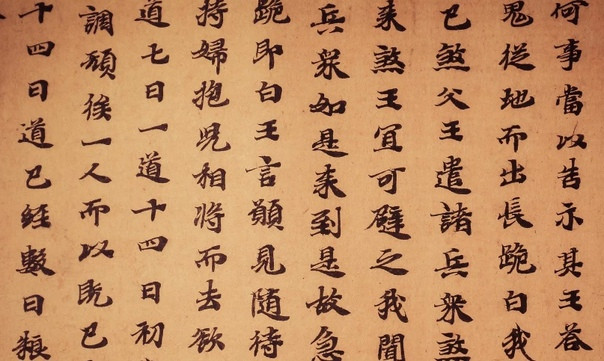 何事當以告示其王答
鬼從地而出長跪白我
已煞父王遣諸兵衆煞
来煞王宜可避之我聞
兵衆如是来到是故急
跪即白王言願見隨待
持婦抱兒相將而去欲
道七日一道十四日初
調一人而以既已
十四日道已經數日粮